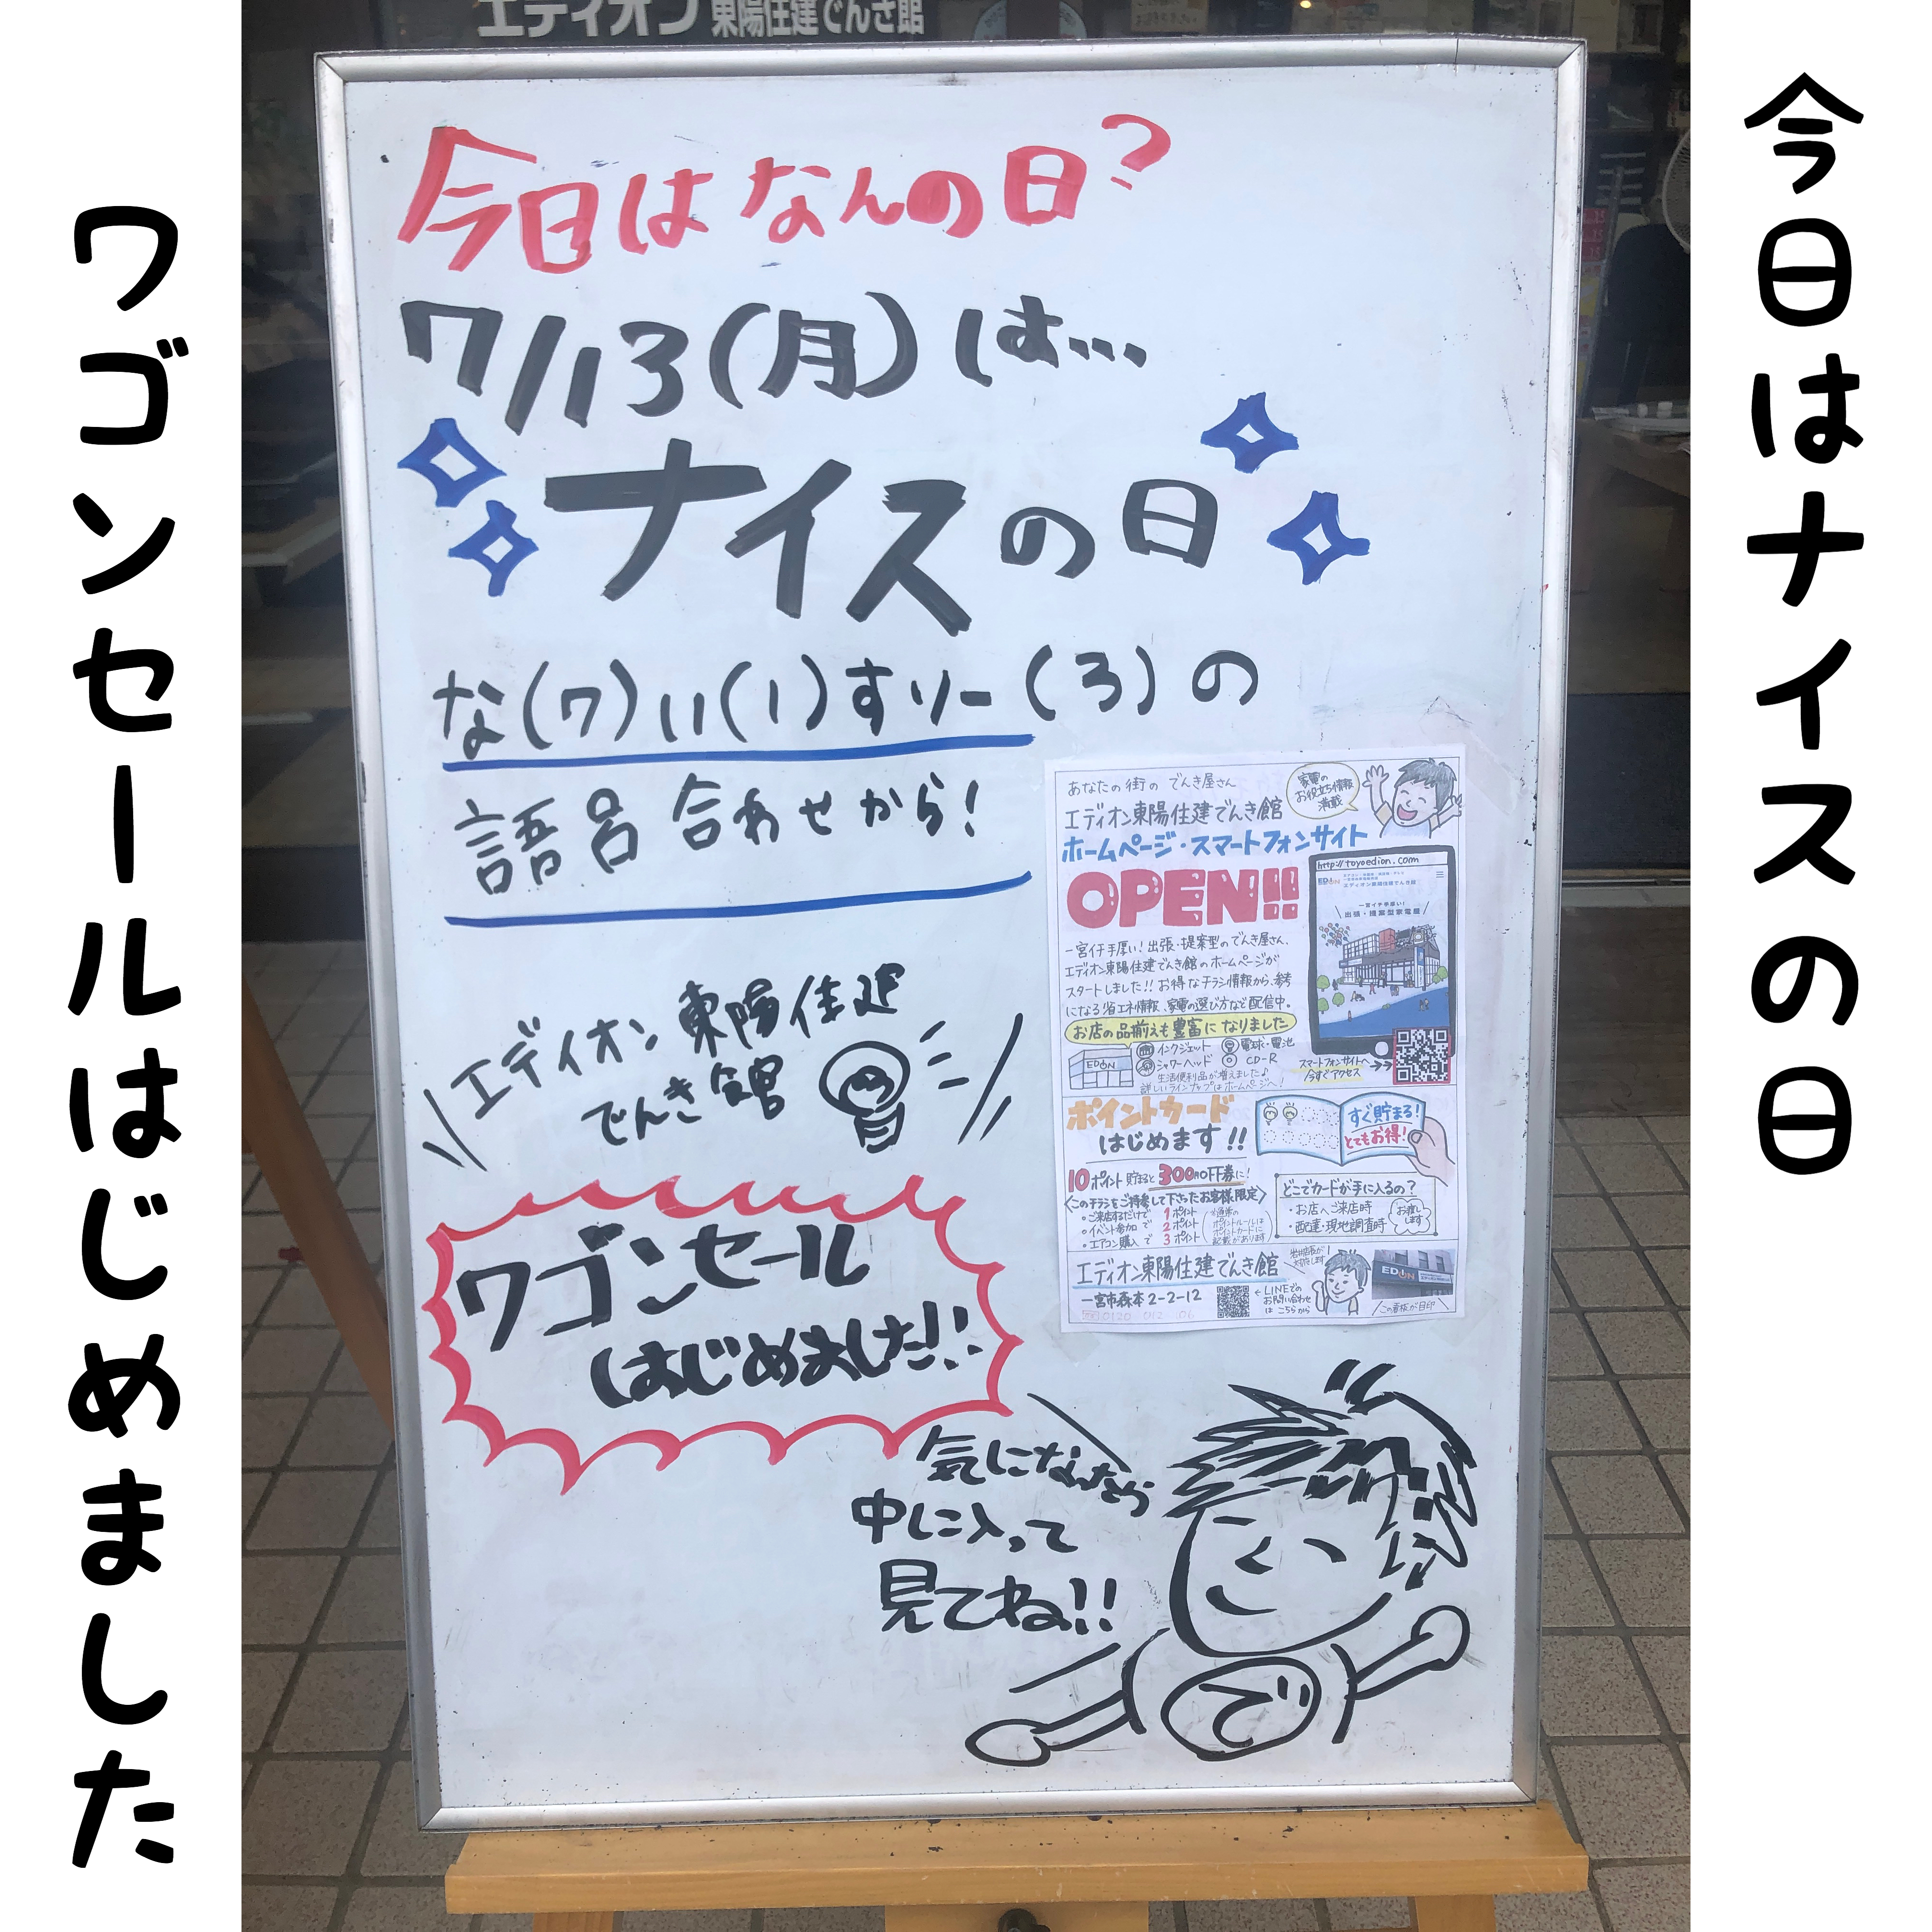 今日はナイスの日
ワゴンセールはじめました
エディオン東陽住建でんき館
今日はなんの日?
7/13(月)は...
ナイスの日
な(7)い(1)すりー(3)の
語呂合わせから!
エディオン東陽住建
でんき館
ワゴンセール
はじめました!!
気になったら
中に入って
見てね!!
で
あなたの街のでんき屋さん
エディオン東陽住建でんき館
家電の
お役立ち情報
満載
ホームページ・スマートフォンサイト
OPEN!!
http://toyoedion.com
EDION
エディオン東陽住建でんき館
一宮イチ手厚い!
出張・提案型家電屋
一宮イチ手厚い!出張・提案型のでんき屋さん、
エディオン東陽住建でんき館のホームページが
スタートしました!!お得なチラシ情報から、参考
になる省エネ情報、家電の選び方など配信中。
お店の品揃えも豊富になりました
EDION
インクジェット
電球・電池
シャワーヘッド
CD-R
生活便利品が増えました♪
詳しいラインナップはホームページへ!
スマートフォンサイトへ
今すぐアクセス
ポイントカード
はじめます!!
すぐ貯まる!
とてもお得!
10ポイント貯まると300円OFF券に!
<このチラシをご持参して下さったお客様限定>
・ご来店するだけで 1ポイント
・イベント参加で 2ポイント
・エアコン購入で 3ポイント
どこでカードが手に入るの?
・お店へご来店時
・配達・現地調査時
お渡し
します
エディオン東陽住建でんき館
一宮市森本2-2-12
←LINEでの
お問い合わせ
はこちらから
EDION
この看板が目印